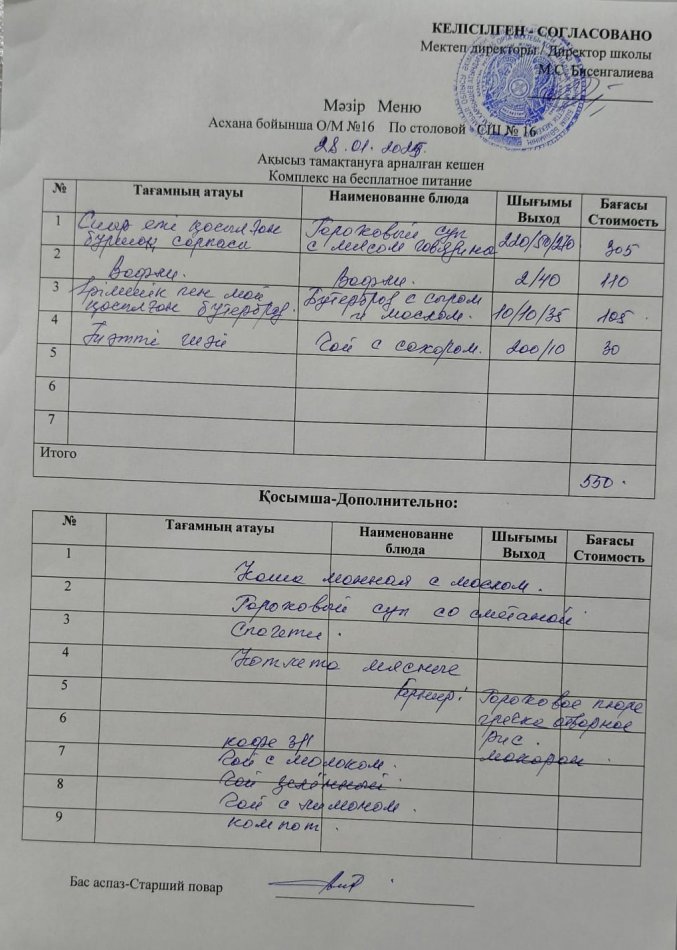 КЕЛІСІЛГЕН - СОГЛАСОВАНО
Мектеп директоры / Директор школы
М.С. Бисенгалиева
Мәзір Меню
Асхана бойынша О/М №16 По столовой СШ № 16
28.01.2025
Ақысыз тамақтануға арналған кешен
Комплекс на бесплатное питание
№ Тағамның атауы Наименованне блюда Шығымы Выход Бағасы Стоимость
1 Сиыр еті қосылған бұршақ сорпасы Гороховый суп с мясом говядина 220/50/270 305
2 Вафли. Вафли. 2/40 110
3 Ірімшік пен май қосылған бутерброд. Бутерброд с сыром и маслом. 10/10/35 105
4 Тәтті шәй Чай с сахаром. 200/10 30
5
6
7
Итого 550
Қосымша-Дополнительно:
№ Тағамның атауы Наименованне блюда Шығымы Выход Бағасы Стоимость
1 Каша манная с маслом.
2 Гороховый суп со сметаной
3 Спагети.
4 Котлета мясные
5 Гарнир: Гороховое пюре
6 гречка отварное
кофе 3/1 рис.
7 Чай с молоком. макарон
Чай зелённый
8 Чай с лимоном.
9 компот.
Бас аспаз-Старший повар